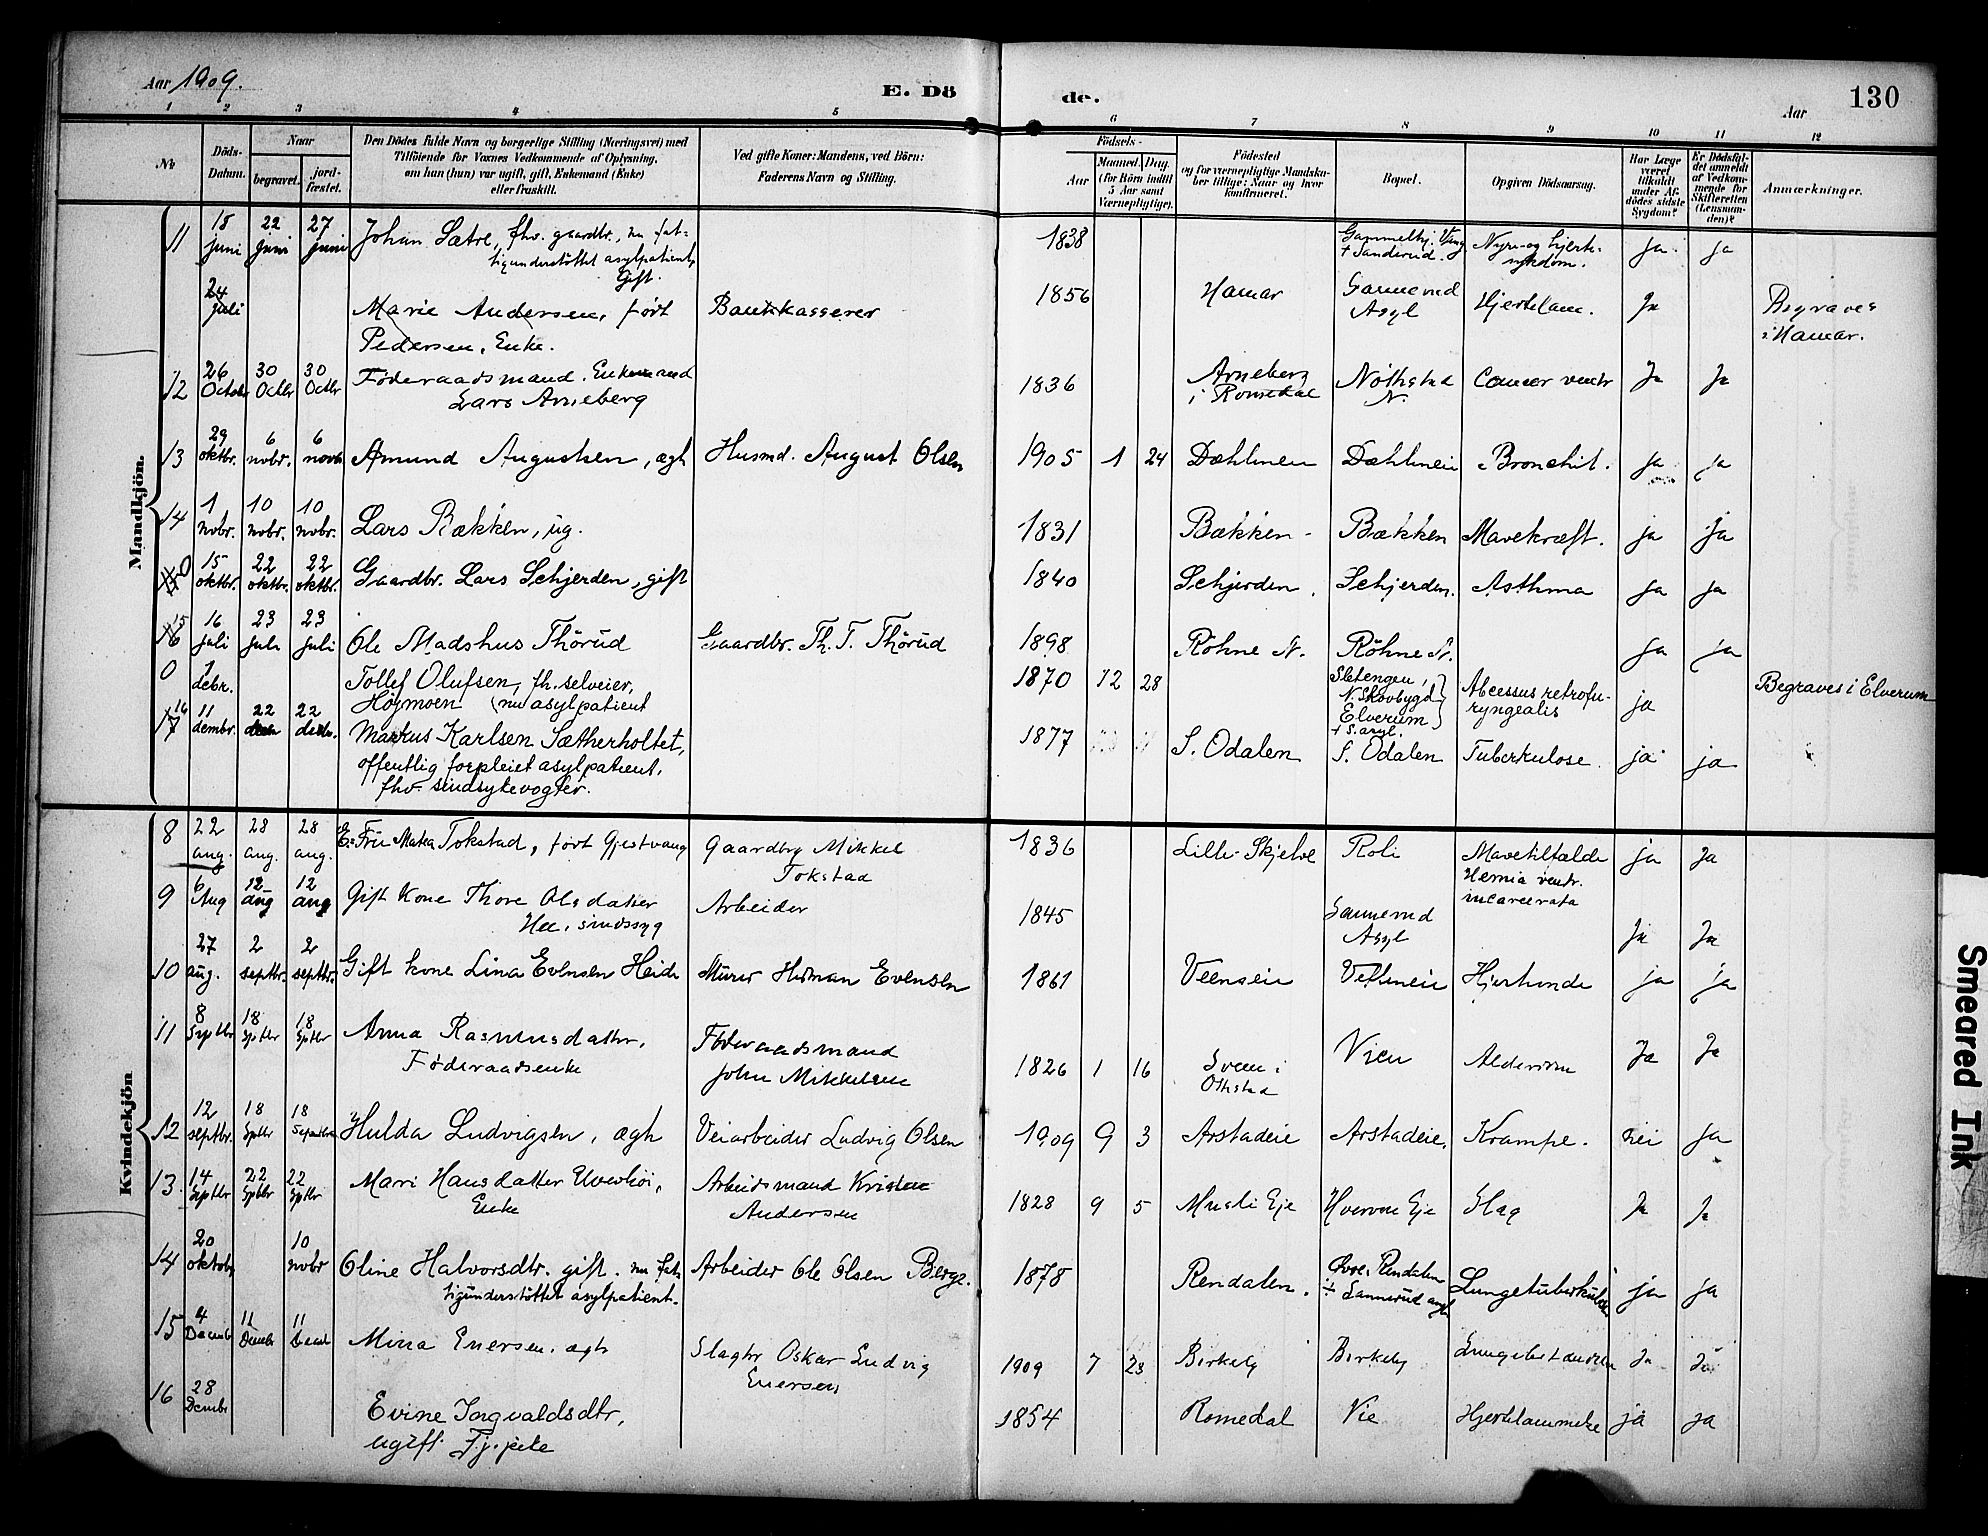 Aar 1909.
E. Dö
de.
Aar
130
1 2 3 4 5 6 7 8 9 10 11 12
No
Döds-Datum.
Naar
begravet.
jord-fæstet.
Den Dödes fulde Navn og borgerlige Stilling (Næringsvei) med
Tilföiende for Voxnes Vedkommende af Oplysning,
om han (hun) var ugift, gift, Enkemand (Enke)
eller fraskilt.
Ved gifte Koner: Mandens, ved Börn:
Faderens Navn og Stilling.
Födsels-
Aar
Maaned. Dag.
(for Börn indtil
5 Aar samt
Værnepligtige).
Födested
og for værnepligtige Mandskaber tillige: Naar og hvor
konfirmeret.
Bopæl.
Opgiven Dödsaarsag.
Har Læge
været
tilkaldt
under Afdödes sidste
Sygdom?
Er Dödsfaldet anmeldt
af Vedkommende for
Skifteretten
(Lensmanden)?
Anmærkninger.
Mandkjön.
11 18 juni 22 juni 27 juni Johan Sætre, fhv. gaardbr., nu fattigunderstöttet asylpatient, Gift. 1838 Gammelhj. Vang + Sanderud. Nyre- og hjertesygdom. ja ja
24 juli Marie Andersen, født Pedersen, Enke. Bankkasserer 1856 Hamar Sannerud Asyl Hjertelam. Ja Begraves i Hamar.
12 26 Octobr 30 Octbr 30 Octbr Föderaadsmand. Enkemand Lars Arneberg 1836 Arneberg i Romedal Nöthstad N. Cancer ventr Ja Ja
13 29 oktbr. 6 nobr. 6 novb. Amund Augustsen, ægt Husmd. August Olsen 1905 1 24 Dæhlineie Dæhlineie Bronchit. ja ja
14 1 nobr. 10 nobr. 10 nobr. Lars Bækken, ug. 1831 Bækken Bækken Mavekræft. ja ja
0 15 oktbr. 22 oktbr. 22 oktbr. Gaardbr. Lars Schjerden, gift 1840 Schjerden. Schjerden. Asthma ja ja
15 16 juli 23 juli 23 juli Ole Madshus Thörud Gaardbr. Th. T. Thörud 1898 Röhne N. Röhne N. ja ja
0 7 debr. Tollef Olufsen, fh. selveier, Højmoen (nu asylpatient 1870 12 28 Sletengen, N. Skovbygd Elverum + S. asyl. Abcessus retrofaryngealis ja Begraves i Elverum
17 16 11 dembr. 22 22 Markus Karlsen Sætherholtet, offentlig forpleiet asylpatient, fhv. sindsykevogter. 1877 S. Odalen S. Odalen Tuberkulose. ja ja
Kvindekjön
8 22 aug. 28 aug. 28 aug. Fru Matea Tokstad, født Gjestvang Gaardbr Mikkel Tokstad 1836 Lille-Skjelve Roli Mavetilfælde Hernia ventr. incarcerata ja Ja
9 6 Aug 12 aug 12 aug Gift Kone Thore Olsdatter sindssyg Arbeider 1845 Sannerud Asyl Ja Ja
10 27 aug. 2 septbr. 2 septbr. Gift kone Lina Evensen Heide Murer Herman Evensen 1861 Veenseie Hjerteonde ja ja
11 8 Sptbr 18 Sptbr 18 Sptbr Anna Rasmusdatter, Föderaadsenke Föderaadsmand John Mikkelsen 1826 1 16 Sveen i Othstad Vien Alderdom Ja Ja
12 12 septbr. 18 Sptbr 18 Hulda Ludvigsen, ægte Veiarbeider Ludvig Olsen 1909 9 3 Arstadeie Arstadeie, Krampe. nei ja
13 14 Sptbr 22 Sptbr 22 Sptbr Mari Hansdatter Enke Arbeidsmand Kristen Andersen 1828 9 5 Musli Eje Eje Slag Ja Ja
14 20 oktobr 10 nobr Oline Halvorsdtr. gift. nu fattigunderstöttet asylpatient. Arbeider Ole Olsen Berge. 1878 Rendalen. Øvre Rendalen + Sannerud asyl Lungetuberkulose ja ja
15 4 Decembr 11 Decmbr 11 Decmb Mina Enersen, ægte Slagtr Oskar Ludvig Enersen 1909 7 23 Birkely Birkely Lungebetændelse Ja Ja
16 28 Decmbr Evine Ingvaldsdtr, ugift Tj. pike 1854 Romedal Vie Hjertelammelse ja ja
Smeared Ink